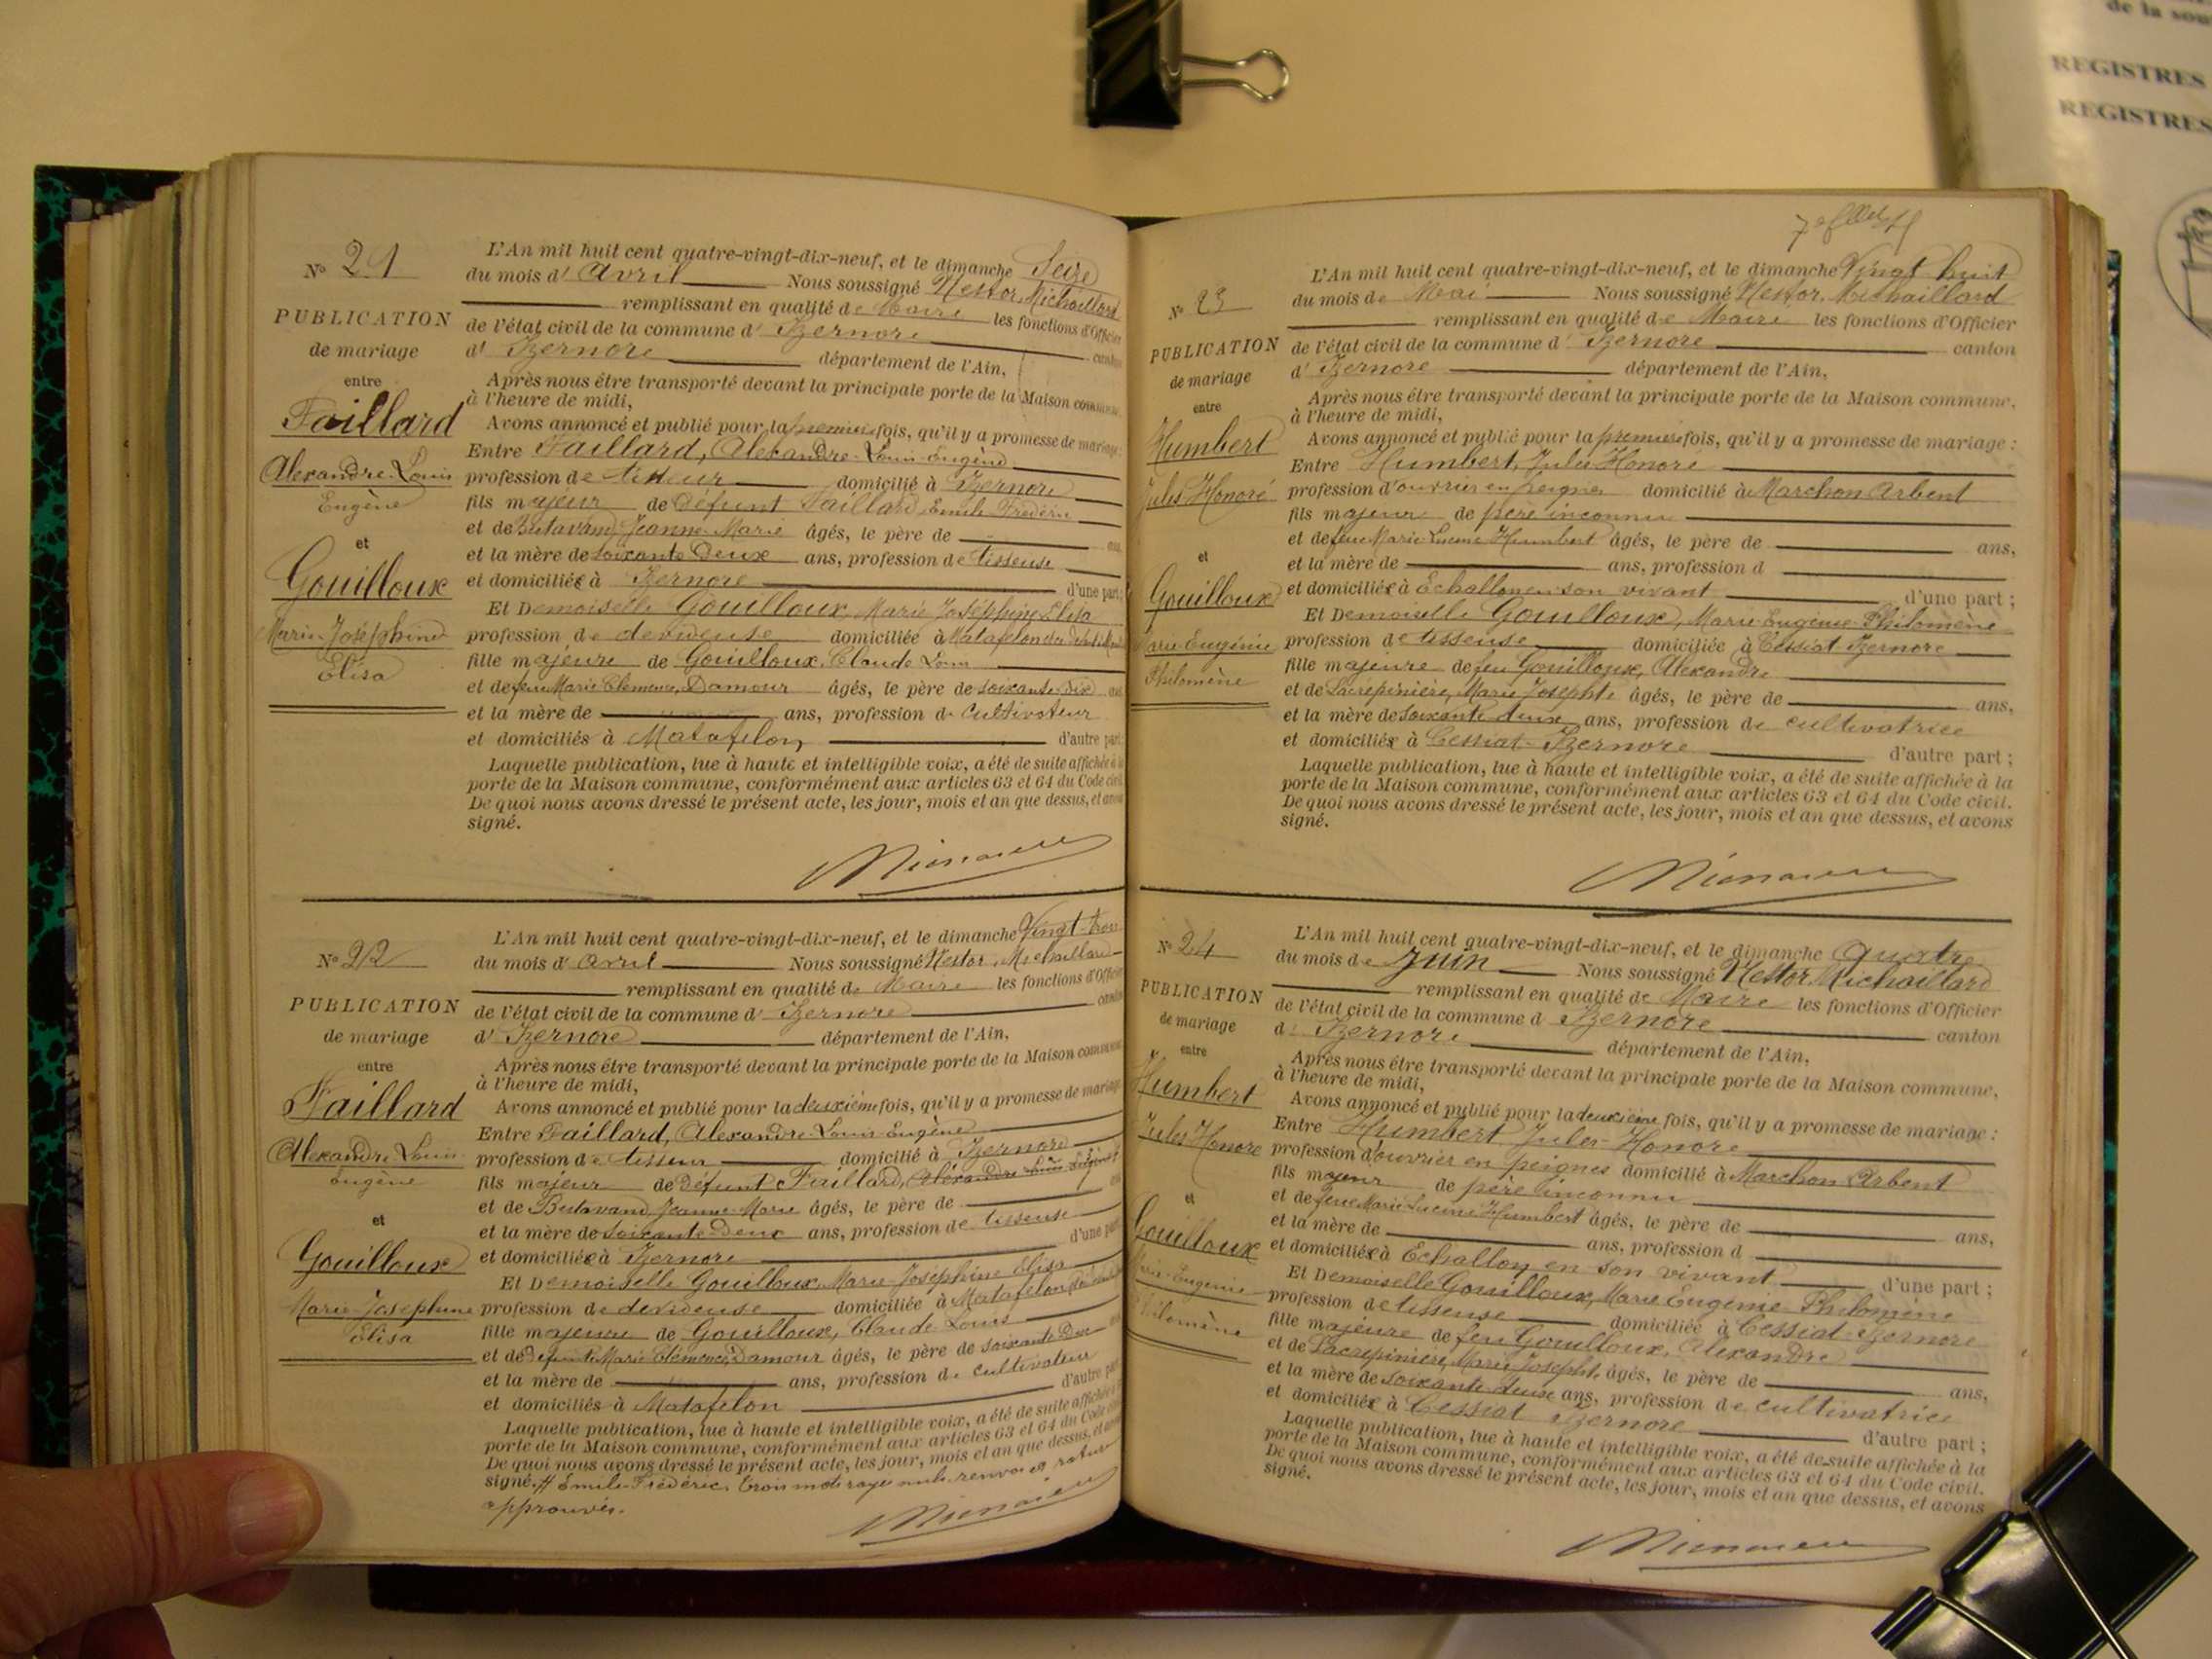 de la sou
REGISTRES
REGISTRES
N° 21
PUBLICATION
de mariage
entre
Faillard
Alexandre-Louis
Eugène
et
Gouilloux
Marie-Joséphine
Elisa
L'An mil huit cent quatre-vingt-dix-neuf, et le dimanche Seize
du mois d' Avril Nous soussigné Nestor, Michaillard
remplissant en qualité de Maire les fonctions d'Officier
de l'état civil de la commune d' Izernore canton
d' Izernore département de l'Ain,
Après nous être transporté devant la principale porte de la Maison commune,
à l'heure de midi,
Avons annoncé et publié pour la premiere fois, qu'il y a promesse de mariage:
Entre Faillard, Alexandre-Louis-Eugène
profession de tisseur domicilié à Izernore
fils majeur de défunt Faillard, Emile Frédéric
et de Butavand Jeanne-Marie âgés, le père de ans,
et la mère de soixante deux ans, profession de tisseuse
et domiciliés à Izernore d'une part;
Et Demoiselle Gouilloux, Marie Joséphine Elisa
profession de devideuse domiciliée à Matafelon
fille majeure de Gouilloux, Claude Louis
et de feue Marie Clémence, Damour âgés, le père de soixante-dix ans
et la mère de ans, profession de Cultivateur
et domiciliés à Matafelon, d'autre part;
Laquelle publication, lue à haute et intelligible voix, a été de suite affichée à la
porte de la Maison commune, conformément aux articles 63 et 64 du Code civil.
De quoi nous avons dressé le présent acte, les jour, mois et an que dessus, et avons
signé.
N° 22
PUBLICATION
de mariage
entre
Faillard
Alexandre Louis
Eugène
et
Gouilloux
Marie-Josephine
Elisa
L'An mil huit cent quatre-vingt-dix-neuf, et le dimanche Vingt-trois
du mois d' Avril Nous soussigné Nestor, Michaillard
remplissant en qualité de Maire les fonctions d'Officier
de l'état civil de la commune d' Izernore canton
d' Izernore département de l'Ain,
Après nous être transporté devant la principale porte de la Maison commune
à l'heure de midi,
Avons annoncé et publié pour la deuxième fois, qu'il y a promesse de mariage
Entre Faillard, Alexandre-Louis-Eugène
profession de tisseur domicilié à Izernore
fils majeur de Défunt Faillard, Alexandre Louis Eugène #
et de Butavand Jeanne-Marie âgés, le père de ans
et la mère de soixante-deux ans, profession de tisseuse
et domiciliés à Izernore d'une part
Et Demoiselle Gouilloux, Marie-Joséphine Elisa
profession de devideuse domiciliée à Matafelon
fille majeure de Gouilloux, Claude-Louis
et de Défunte Marie Clémence, Damour âgés, le père de soixante Dix ans
et la mère de ans, profession de Cultivateur
et domiciliés à Matafelon d'autre part
Laquelle publication, lue à haute et intelligible voix, a été de suite affichée à la
porte de la Maison commune, conformément aux articles 63 et 64 du Code civil
De quoi nous avons dressé le présent acte, les jour, mois et an que dessus, et avons
signé. # Emile-Frédéric. Trois mots rayés nuls. renvoi et rature
approuvés.
N° 23
PUBLICATION
de mariage
entre
Humbert
Jules Honoré
et
Gouilloux
Marie-Eugénie
Philomène
L'An mil huit cent quatre-vingt-dix-neuf, et le dimanche Vingt huit
du mois de Mai Nous soussigné Nestor, Michaillard
remplissant en qualité de Maire les fonctions d'Officier
de l'état civil de la commune d' Izernore canton
d' Izernore département de l'Ain,
Après nous être transporté devant la principale porte de la Maison commune,
à l'heure de midi,
Avons annoncé et publié pour la premiere fois, qu'il y a promesse de mariage :
Entre Humbert, Jules Honoré
profession d'ouvrier en peignes domicilié à Marchon Arbent
fils majeur de père inconnu
et de feue Marie Lucine Humbert âgés, le père de ans,
et la mère de ans, profession d
et domiciliés à Echallon en son vivant d'une part ;
Et Demoiselle Gouilloux, Marie-Eugénie-Philomène
profession de tisseuse domiciliée à Cessiat-Izernore
fille majeure de feu Gouilloux, Alexandre
et de Lacrépinière, Marie Josephte âgés, le père de ans,
et la mère de soixante-deux ans, profession de cultivatrice
et domiciliés à Cessiat-Izernore d'autre part ;
Laquelle publication, lue à haute et intelligible voix, a été de suite affichée à la
porte de la Maison commune, conformément aux articles 63 et 64 du Code civil.
De quoi nous avons dressé le présent acte, les jour, mois et an que dessus, et avons
signé.
N° 24
PUBLICATION
de mariage
entre
Humbert
Jules Honoré
et
Gouilloux
Marie-Eugénie
Philomène
L'An mil huit cent quatre-vingt-dix-neuf, et le dimanche Quatre
du mois de Juin Nous soussigné Nestor, Michaillard
remplissant en qualité de Maire les fonctions d'Officier
de l'état civil de la commune d Izernore canton
d' Izernore département de l'Ain,
Après nous être transporté devant la principale porte de la Maison commune,
à l'heure de midi,
Avons annoncé et publié pour la deuxième fois, qu'il y a promesse de mariage :
Entre Humbert Jules-Honoré
profession d'ouvrier en peignes domicilié à Marchon Arbent
fils majeur de père inconnu
et de feue Marie Lucine Humbert âgés, le père de ans,
et la mère de ans, profession d
et domiciliés à Echallon en son vivant d'une part ;
Et Demoiselle Gouilloux, Marie Eugénie-Philomène
profession de tisseuse domiciliée à Cessiat-Izernore
fille majeure de feu Gouilloux, Alexandre
et de Lacrépinière, Marie Josephte âgés, le père de ans,
et la mère de soixante-deux ans, profession de cultivatrice
et domiciliés à Cessiat Izernore d'autre part ;
Laquelle publication, lue à haute et intelligible voix, a été de suite affichée à la
porte de la Maison commune, conformément aux articles 63 et 64 du Code civil.
De quoi nous avons dressé le présent acte, les jour, mois et an que dessus, et avons
signé.